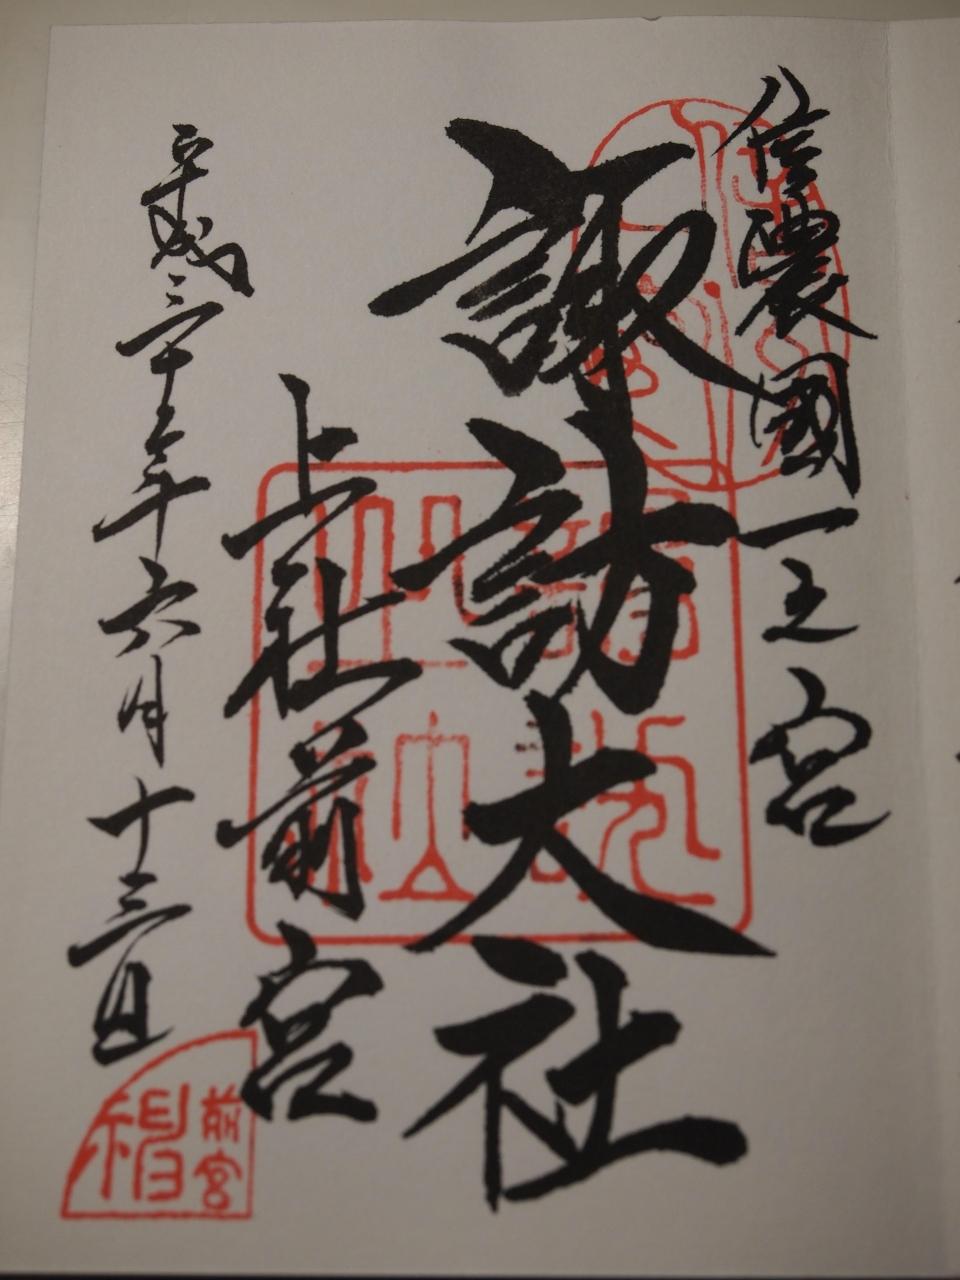 信濃國一之宮
諏訪大社
上社前宮
平成三十年六月十三日
前宮